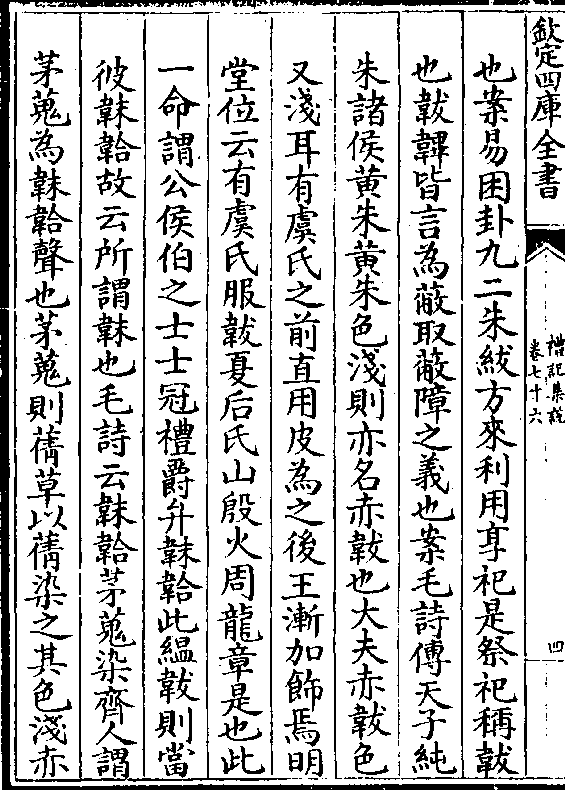 欽定四庫全書
禮記集說
卷七十六
四
也案易困卦九二朱紱方來利用享祀是祭祀稱韍
也韍韠皆言為蔽取蔽障之義也案毛詩傳天子純
朱諸侯黃朱黃朱色淺則亦名赤韍也大夫赤韍色
又淺耳有虞氏之前直用皮為之後王漸加飾焉明
堂位云有虞氏服韍夏后氏山殷火周龍章是也此
一命謂公侯伯之士士冠禮爵弁韎韐此縕韍則當
彼韎韐故云所謂韎也毛詩云韎韐茅蒐染齊人謂
茅蒐為韎韐聲也茅蒐則蒨草以蒨染之其色淺赤